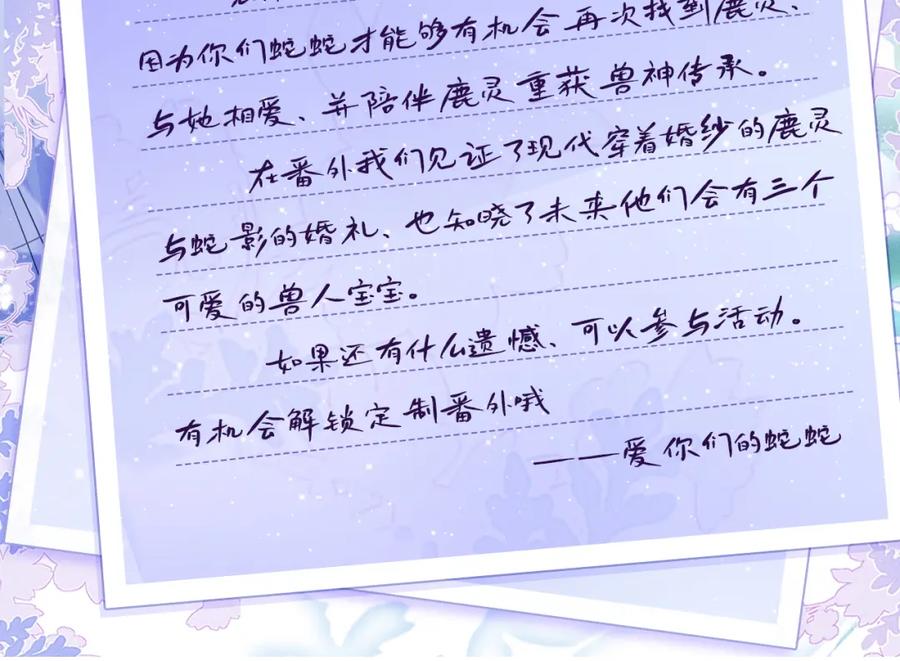 因为你们蛇蛇才能够有机会再次找到鹿灵、
与她相爱、并陪伴鹿灵重获兽神传承。
在番外我们见证了现代穿着婚纱的鹿灵
与蛇影的婚礼、也知晓了未来他们会有三个
可爱的兽人宝宝。
如果还有什么遗憾、可以参与活动。
有机会解锁定制番外哦
——爱你们的蛇蛇